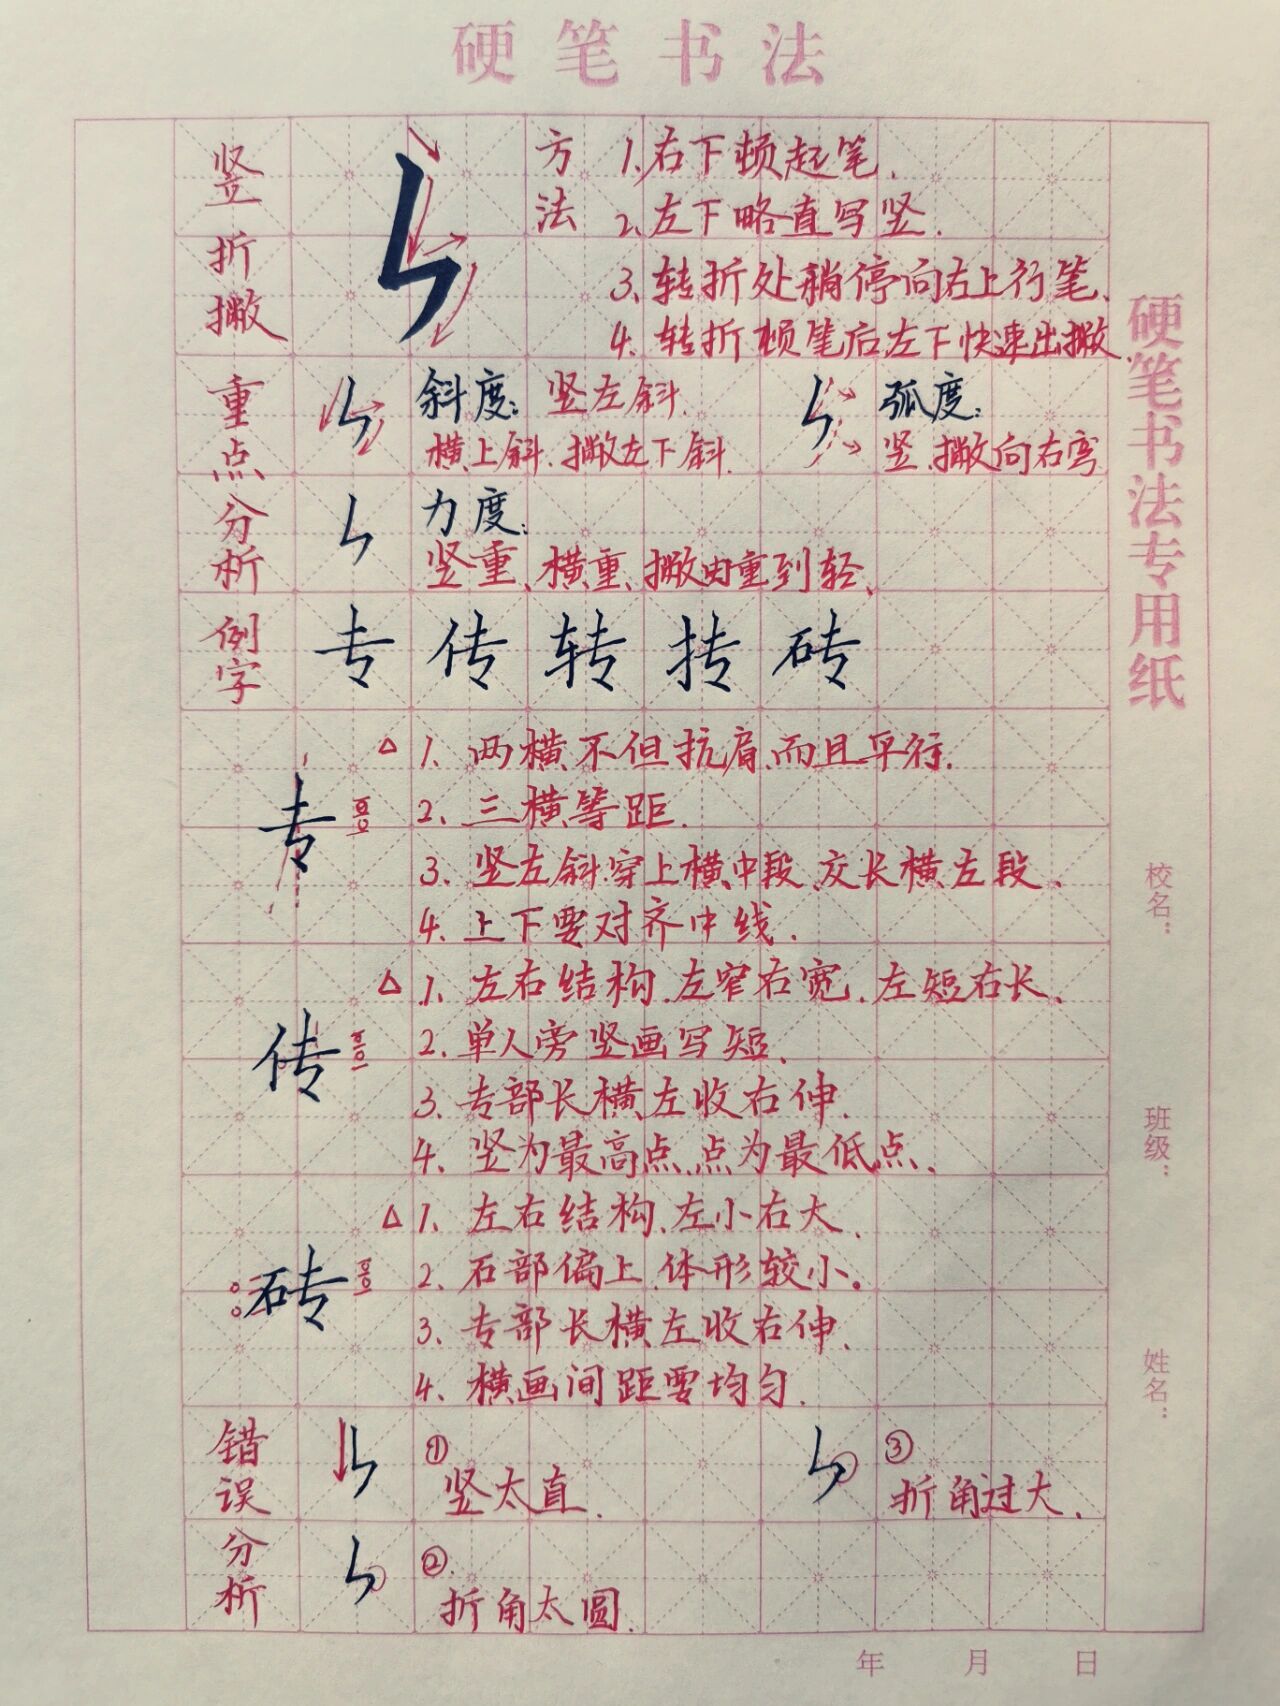 硬笔书法
竖折撇
方法
1.右下顿起笔.
2.左下略直写竖.
3.转折处稍停向右上行笔.
4.转折顿笔后左下快速出撇
重点分析
斜度:竖左斜.
横上斜.撇左下斜.
弧度:
竖.撇向右弯
力度:
竖重、横重、撇由重到轻、
例字
专 传 转 抟 砖
专
△1、两横不但抗肩、而且平行.
2.三横等距.
3、竖左斜.穿上横中段、交长横左段、
4.上下要对齐中线.
传
△1、左右结构.左窄右宽.左短右长、
2.单人旁竖画写短.
3.专部长横左收右伸.
4.竖为最高点、点为最低点、
砖
△1、左右结构、左小右大、
2.石部偏上.体形较小。
3.专部长横左收右伸.
4、横画间距要均匀.
错误分析
①
竖太直.
③
折角过大、
②.
折角太圆.
硬笔书法专用纸
校名:
班级:
姓名:
年 月 日